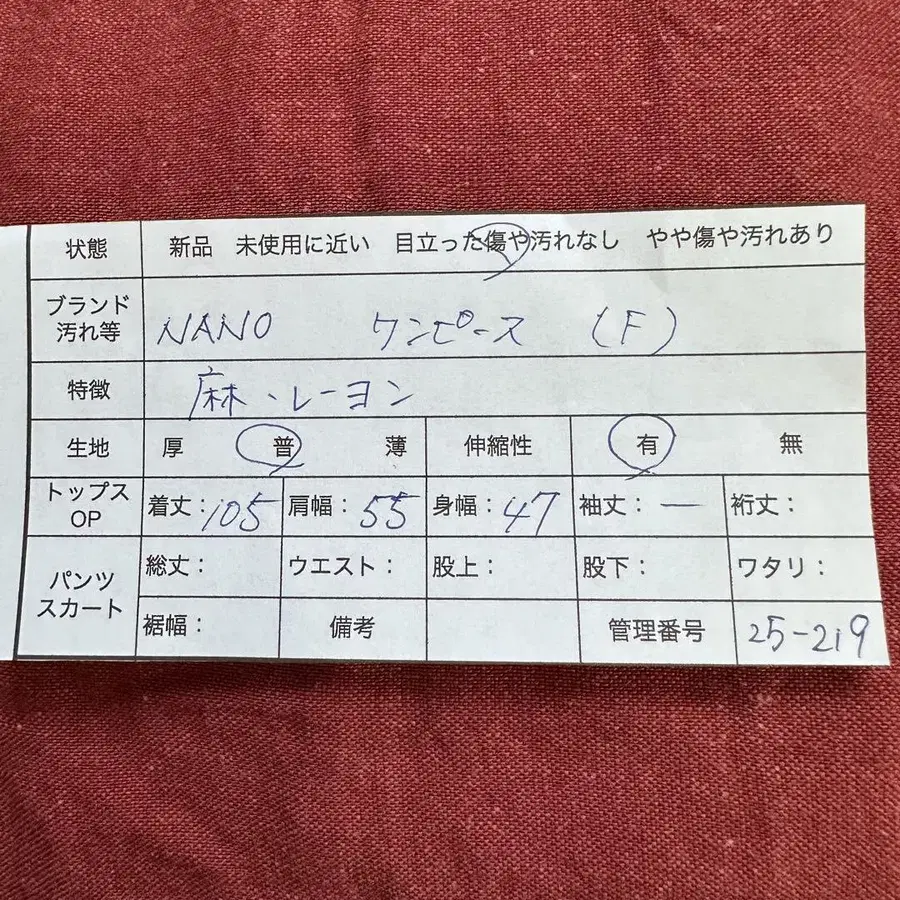 状態 新品 未使用に近い 目立った傷や汚れなし やや傷や汚れあり
ブランド
汚れ等 NANO ワンピース (F)
特徴 麻、レーヨン
生地 厚 普 薄 伸縮性 有 無
トップス
OP 着丈:105 肩幅:55 身幅:47 袖丈:― 裄丈:
パンツ
スカート 総丈: ウエスト: 股上: 股下: ワタリ:
裾幅: 備考 管理番号 25-219